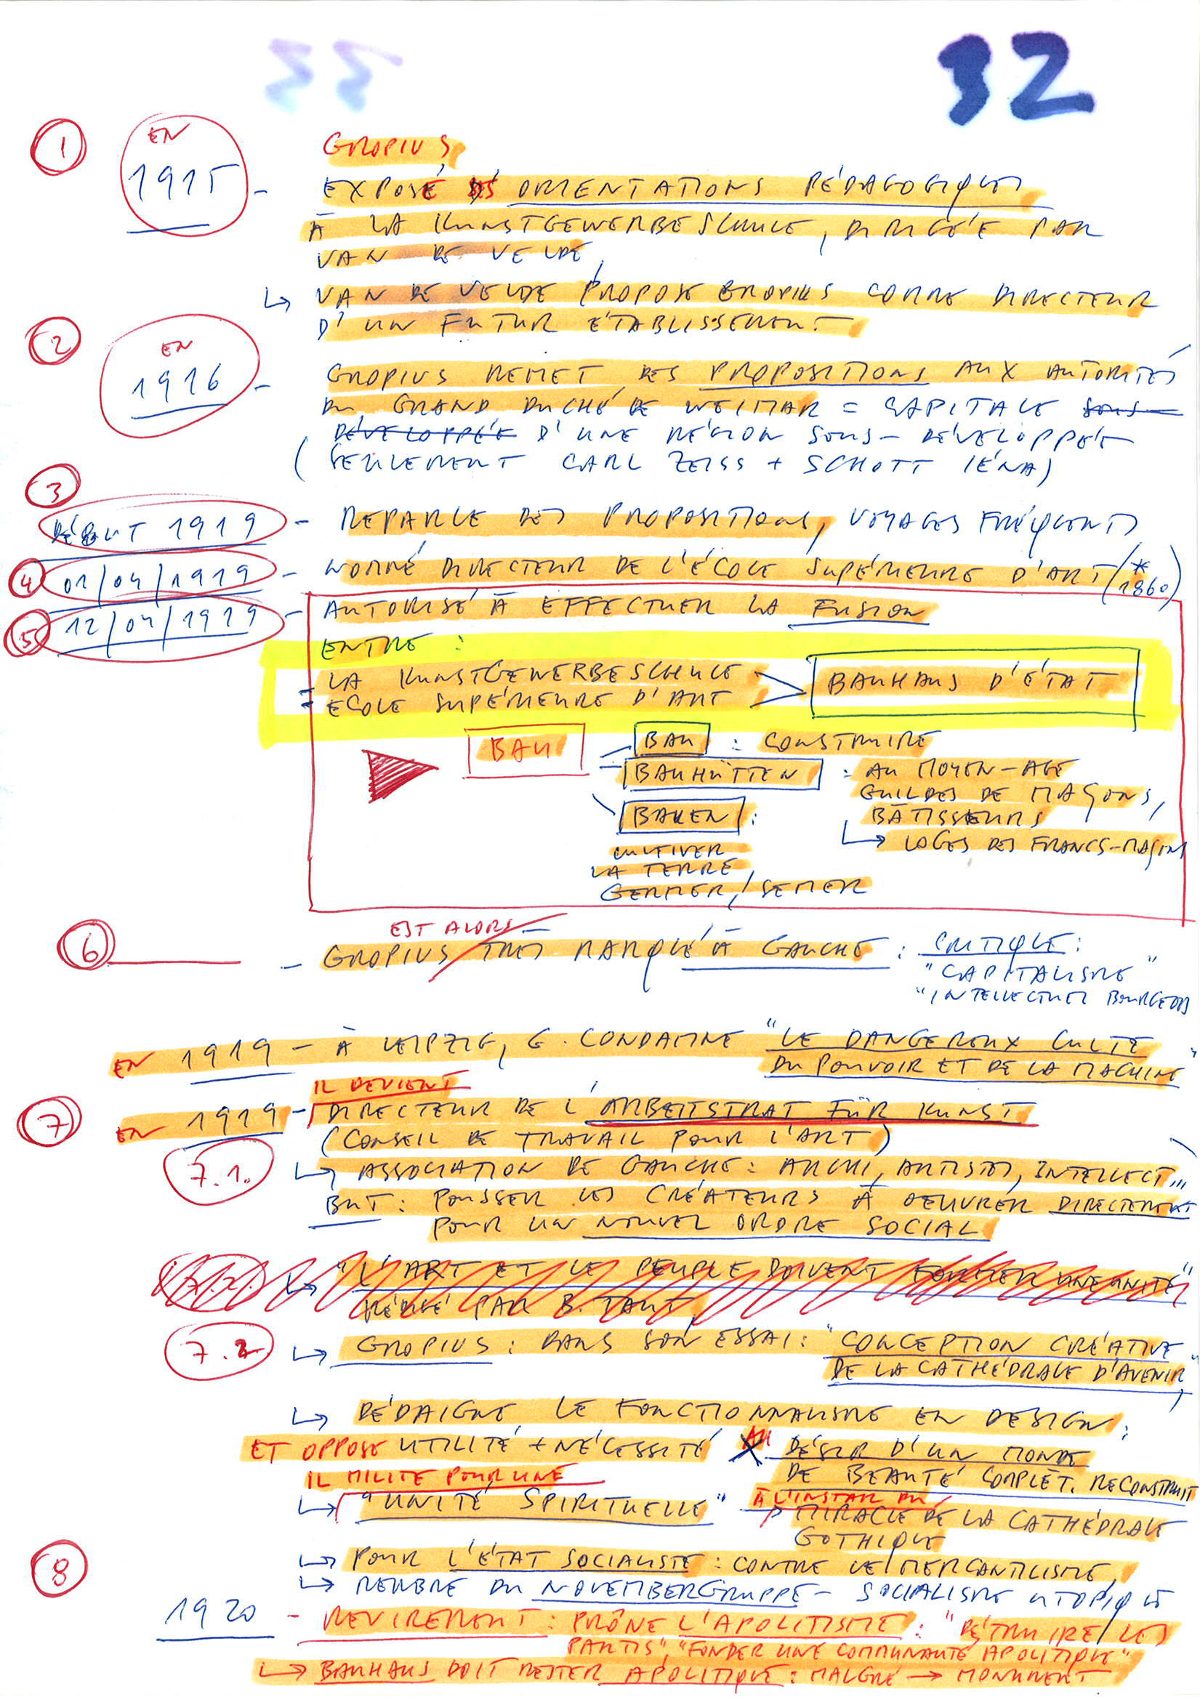 32
1 EN 1915 - GROPIUS
EXPOSÉ DES ORIENTATIONS PÉDAGOGIQUES
À LA KUNSTGEWERBESCHULE, DIRIGÉE PAR
VAN DE VELDE,
↳ VAN DE VELDE PROPOSE GROPIUS COMME DIRECTEUR
D'UN FUTUR ÉTABLISSEMENT
2 EN 1916 - GROPIUS REMET DES PROPOSITIONS AUX AUTORITÉS
DU GRAND DUCHÉ DE WEIMAR = CAPITALE SOUS-
DÉVELOPPÉE D'UNE RÉGION SOUS-DÉVELOPPÉE
(SEULEMENT CARL ZEISS + SCHOTT IÉNA)
3 DÉBUT 1919 - REPARLE DES PROPOSITIONS, VOYAGES FRÉQUENTS
4 01/04/1919 - NOMMÉ DIRECTEUR DE L'ÉCOLE SUPÉRIEURE D'ART (* 1860)
5 12/04/1919 - AUTORISÉ À EFFECTUER LA FUSION
ENTRE :
- LA KUNSTGEWERBESCHULE
- ECOLE SUPÉRIEURE D'ART > BAUHAUS D'ÉTAT
BAU - BAU : CONSTRUIRE
- BAUHÜTTEN : AU MOYEN-AGE
GUILDES DE MAÇONS,
BÂTISSEURS
↳ LOGES DES FRANCS-MAÇONS
BAUEN :
CULTIVER
LA TERRE,
GERMER/SEMER
6 EST ALORS
- GROPIUS TRÈS MARQUÉ À GAUCHE : CRITIQUE :
"CAPITALISME"
"INTELLECTUEL BOURGEOIS
EN 1919 - À LEIPZIG, G. CONDAMNE "LE DANGEREUX CULTE
DU POUVOIR ET DE LA MACHINE"
IL DEVIENT
7 EN 1919 - DIRECTEUR DE L'ARBEITSTRAT FÜR KUNST
(CONSEIL DE TRAVAIL POUR L'ART)
7.1. ↳ ASSOCIATION DE GAUCHE : ARCHI, ARTISTES, INTELLECT...
BUT : POUSSER LES CRÉATEURS À OEUVRER DIRECTEMENT
POUR UN NOUVEL ORDRE SOCIAL
7.2. ↳ "L'ART ET LE PEUPLE DOIVENT FORMER UNE UNITÉ"
PAR B. TAUT
7.2 ↳ GROPIUS : DANS SON ESSAI : "CONCEPTION CRÉATIVE
DE LA CATHÉDRALE D'AVENIR"
↳ DÉDAIGNE LE FONCTIONNALISME EN DESIGN :
ET OPPOSE UTILITÉ + NÉCESSITÉ AU DÉSIR D'UN MONDE
DE BEAUTÉ COMPLÈT. RECONSTRUIT
IL MILITE POUR UNE
↳ "UNITÉ SPIRITUELLE" À L'INSTAR DU
MIRACLE DE LA CATHÉDRALE
GOTHIQUE
8 ↳ POUR L'ÉTAT SOCIALISTE : CONTRE LE MERCANTILISME,
↳ MEMBRE DU NOVEMBERGRUPPE - SOCIALISME UTOPIQUE
1920 - REVIREMENT : PRÔNE L'APOLITISME : "DÉTRUIRE LES
PARTIS", "FONDER UNE COMMUNAUTÉ APOLITIQUE"
↳ BAUHAUS DOIT RESTER APOLITIQUE : MALGRÉ → MONUMENT